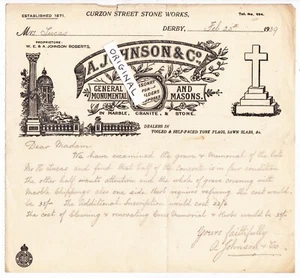 CURZON STREET STONE WORKS,
ESTABLISHED 1871.
Tel. No. 594.
DERBY, Feb 25th 1939
Mrs Lucas
PROPRIETORS:
W. E. & A. JOHNSON ROBERTS.
ORIGINAL
A. JOHNSON & Co
GENERAL AND
MONUMENTAL MASONS.
IN MARBLE, GRANITE, & STONE.
DEALERS IN
TOOLED & SELF-FACED YORK FLAGS, LAWN SLABS, &c.
Dear Madam
We have examined the grave & Memorial of the late
Mr H. Lucas and find that half of the concrete is in fair condition
the other half wants attention and the whole of grave covering with
Marble Chippings also one side Kerb requires refixing the cost would
be 35/- The Additional Inscription would cost
The cost of cleaning & renovating Cross Memorial & Kerbs would be 35/-
Yours faithfully
A Johnson & Co